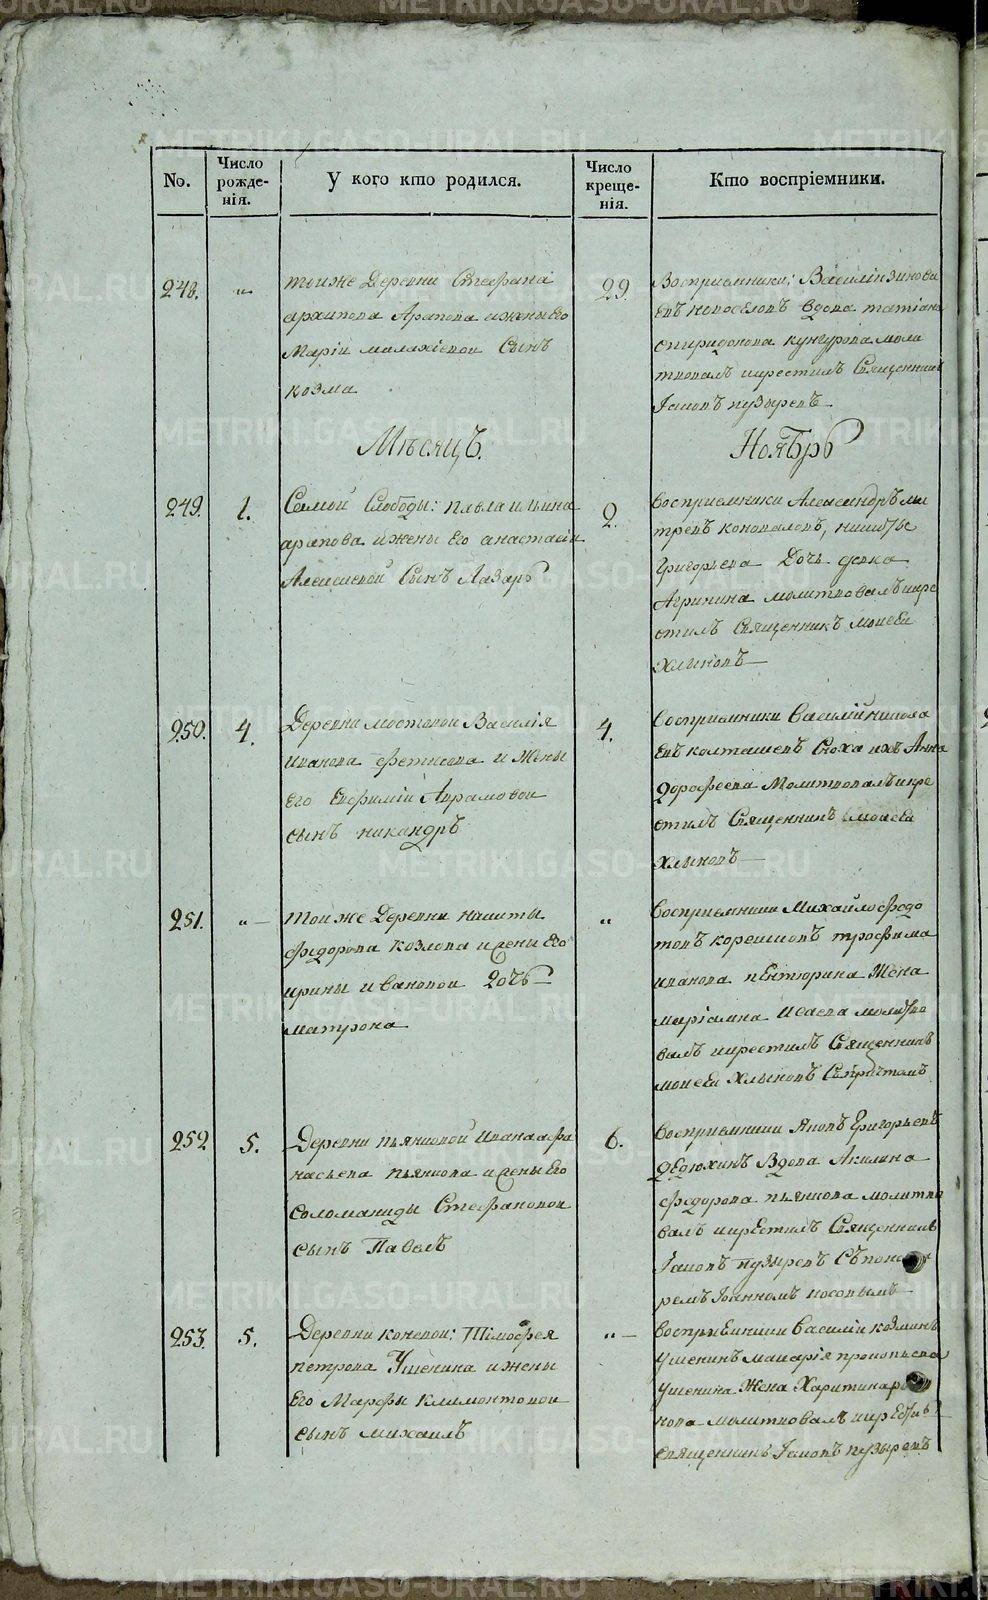 No.
Число рожде-нія.
У кого кто родился.
Число креще-нія.
Кто воспріемники.
248.
"
тоиже Деревни Стефана
архипова Арапова ижены Его
Маріи малахіевой Сынъ
козма
29.
Восприемники; Василіи зинова
Евъ новоселовъ вдова татіана
спиридонова кунгурова моли
твовалъ икрестилъ Священникъ
Іаковъ пузыревъ
Мѣсяцъ.
Ноябрь
249.
1.
Самой Слободы: павла ильина
арапова ижены Его анастасіи
Алексѣевой Сынъ Лазарь
2.
восприемники Александръ
коноваловъ, никиты
григорьева Дочь девка
Агрипина молитвовалъ икре
стилъ Священникъ моисеи
хлыновъ
250.
4.
Деревни мостовои Василія
иванова фетисова и Жены
Его Евфиміи Аврамовои
сынъ никандръ
4.
восприемники василіи никола
Евъ колташевъ Сноха ихъ Анна
дорофеева Молитвовалъ икре
стилъ Священникъ моисеи
хлыновъ
251.
"
тои же Деревни никиты
федорова козлова ижены Его
ирины ивановои дочь
матрона
"
восприемники Михаило федо
товъ трофима
иванова пентюрина жена
маріамна Исаева молитво
валъ икрестилъ Священникъ
моисеи хлыновъ Спричтомъ
252
5.
Деревни пьянковой ивана афа
насьева пьянкова ижены Его
соломаниды Стефановои
сынъ Павелъ
6.
восприемники Яковъ григорьевъ
дедюхинъ вдова Акилина
федорова пьянкова молитво
валъ икрестилъ Священникъ
Іаковъ пузыревъ Съ поно
ремъ Іоанномъ носовымъ
253.
5.
Деревни коневои: Тімофея
петрова Ушенина ижены
Его Марфы климонтовои
сынъ михаилъ
"
восприемники василіи козминъ
ушенинъ макарія прокопьева
ушенина жена Харитина
нова молитвовалъ икрестилъ
священникъ Іаковъ пузыревъ
METRIKI.GASO-URAL.RU